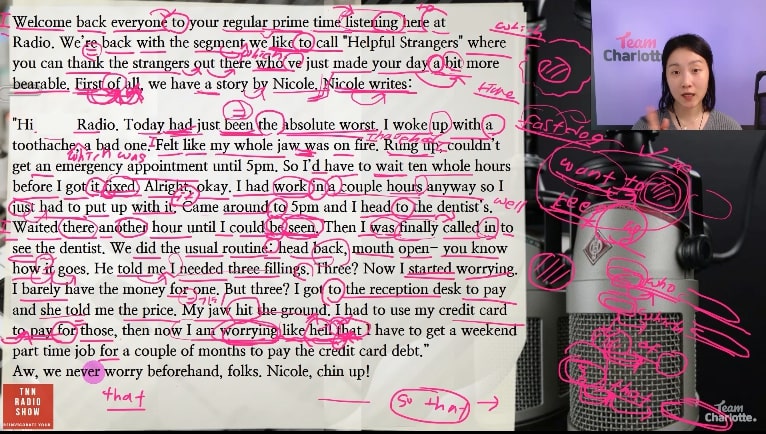 Welcome back everyone to your regular prime time listening here at
Radio. We're back with the segment we like to call "Helpful Strangers" where
you can thank the strangers out there who've just made your day a bit more
bearable. First of all, we have a story by Nicole. Nicole writes:
"Hi Radio. Today had just been the absolute worst. I woke up with a
toothache, a bad one. Felt like my whole jaw was on fire. Ring in, couldn't
get an emergency appointment until 5pm. So I'd have to wait ten whole hours
before I got it fixed. Alright, okay. I had work in a couple hours anyway so I
just had to put up with it. Came around to 5pm and I head to the dentist's.
Waited there another hour until I could be seen. Then I was finally called in to
see the dentist. We did the usual routine: head back, mouth open– you know
how it goes. He told me I needed three fillings. Three? Now I started worrying.
I barely have the money for one. But three? I got to the reception desk to pay
and she told me the price. My jaw hit the ground. I had to use my credit card
to pay for those, then now I am worrying like hell that I have to get a weekend
part time job for a couple of months to pay the credit card debt."
Aw, we never worry beforehand, folks. Nicole, chin up!
which was
well
want to
feel
up
who
that
so that
TNN
RADIO
SHOW
Team
Charlotte.
Team
Charlotte.